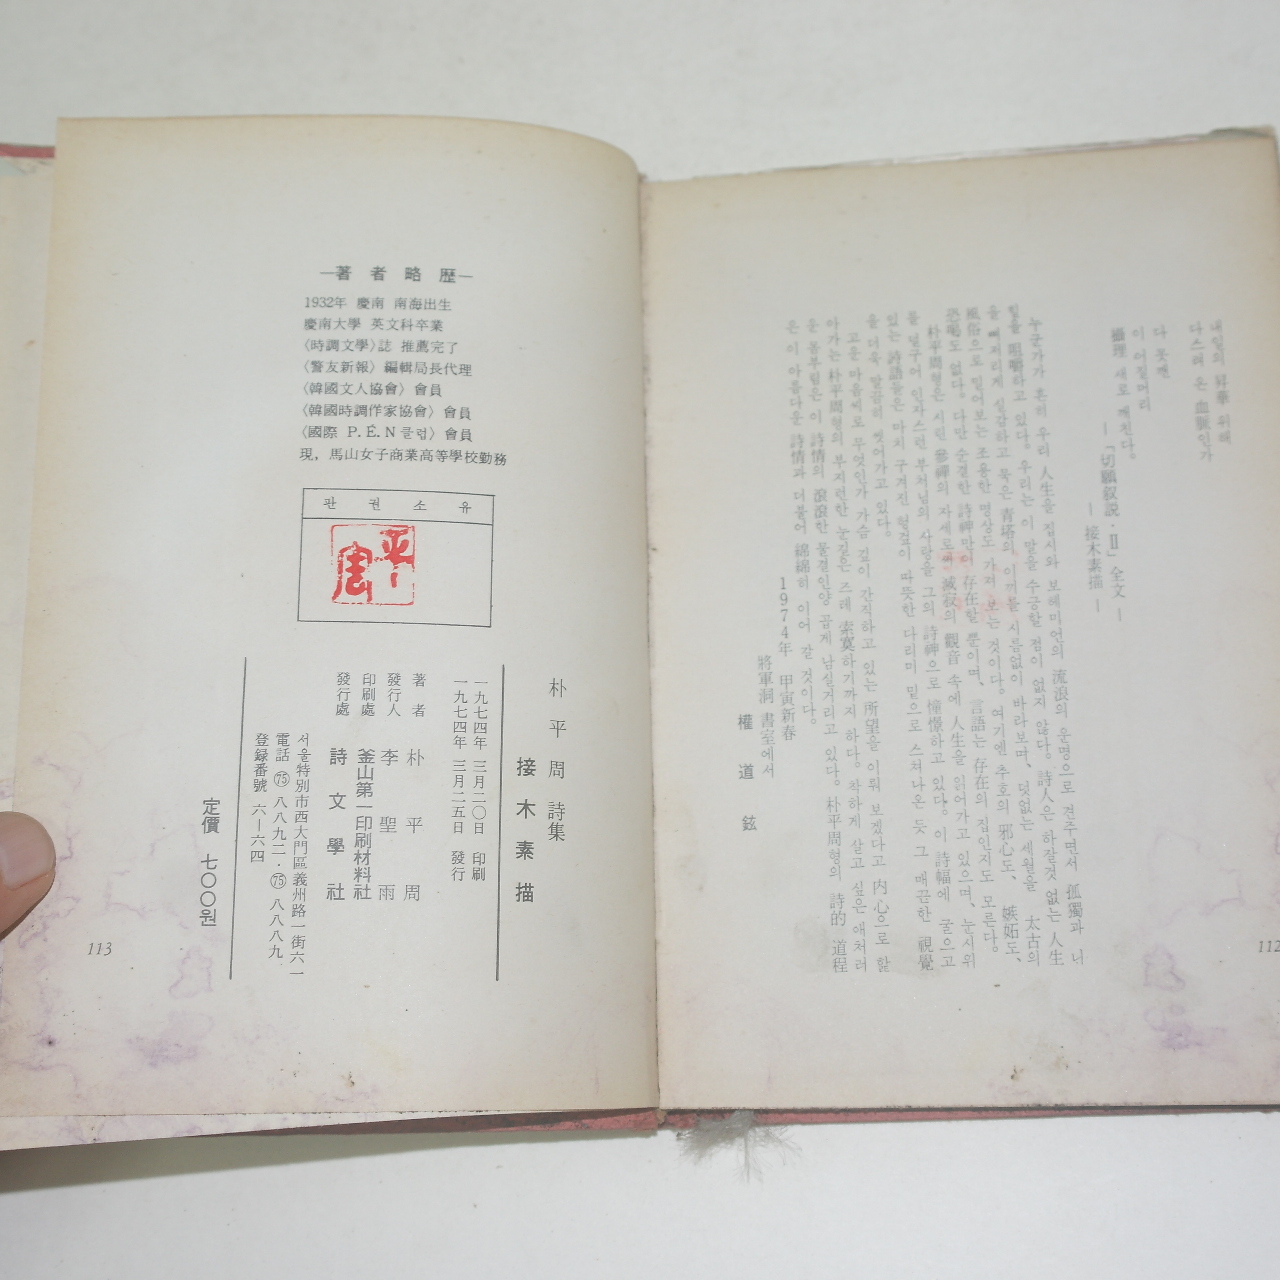 내일의 昇華 위해
다스려 온 血脈인가
다 못깬
이 어질머리
攝理 새로 깨친다.
—「切願叙説·Ⅱ」全文—
—接木素描—
누군가가 흔히 우리 人生을 집시와 보헤미언의 流浪의 운명으로 견주면서 孤獨과 니
힐을 咀嚼하고 있다. 우리는 이 말을 수긍할 점이 없지 않다. 詩人은 하잘것 없는 人生
을 뼈저리게 실감하고 묵은 靑塔의 이끼를 시름없이 바라보며, 덧없는 세월을 太古의
風俗으로 밀어보는 조용한 명상도 가져 보는 것이다. 여기엔 추호의 邪心도, 嫉妬도,
恐喝도 없다. 다만 순결한 詩神만이 存在할 뿐이며, 言語는 存在의 집인지도 모른다.
朴平周형은 시린 參禪의 자세로 寂寂의 觀音 속에 人生을 읽어가고 있으며, 눈시위
를 털구어 인자스런 부처님의 사랑을 그의 詩神으로 憧憬하고 있다. 이 詩幅에 굴으고
있는 詩語들은 마치 구겨진 헝겊이 따뜻한 다리미 밑으로 스쳐나온 듯 그 매끈한 視覺
을 더욱 말끔히 씻어가고 있다.
고운 마음씨로 무엇인가 가슴 깊이 간직하고 있는 所望을 이뤄 보겠다고 內心으로 할
아가는 朴平周형의 부지런한 눈길은 즈레 索寞하기까지 하다. 착하게 살고 싶은 애처러
운 몸부림은 이 詩情의 滾滾한 물결인양 곱게 남실거리고 있다. 朴平周형의 詩的 道程
은 이 아름다운 詩情과 더불어 綿綿히 이어 갈 것이다.
1974年 甲寅新春
將軍洞 書室에서
權道鉉
112
—著者略歷—
1932年 慶南 南海出生
慶南大學 英文科卒業
〈時調文學〉誌 推薦完了
〈警友新報〉編輯局長代理
〈韓國文人協會〉會員
〈韓國時調作家協會〉會員
〈國際 P.E.N클럽〉會員
現, 馬山女子商業高等學校勤務
판권소유
平周
朴平周 詩集
接木素描
一九七四年 三月二〇日 印刷
一九七四年 三月二五日 發行
著者 朴平周
發行人 李聖雨
印刷處 釜山第一印刷材料社
發行處 詩文學社
서울特別市西大門區義州路一街六一
電話 ㉕ 八八九二·㉕ 八八八九
登録番號 六—六四
定價 七〇〇원
113